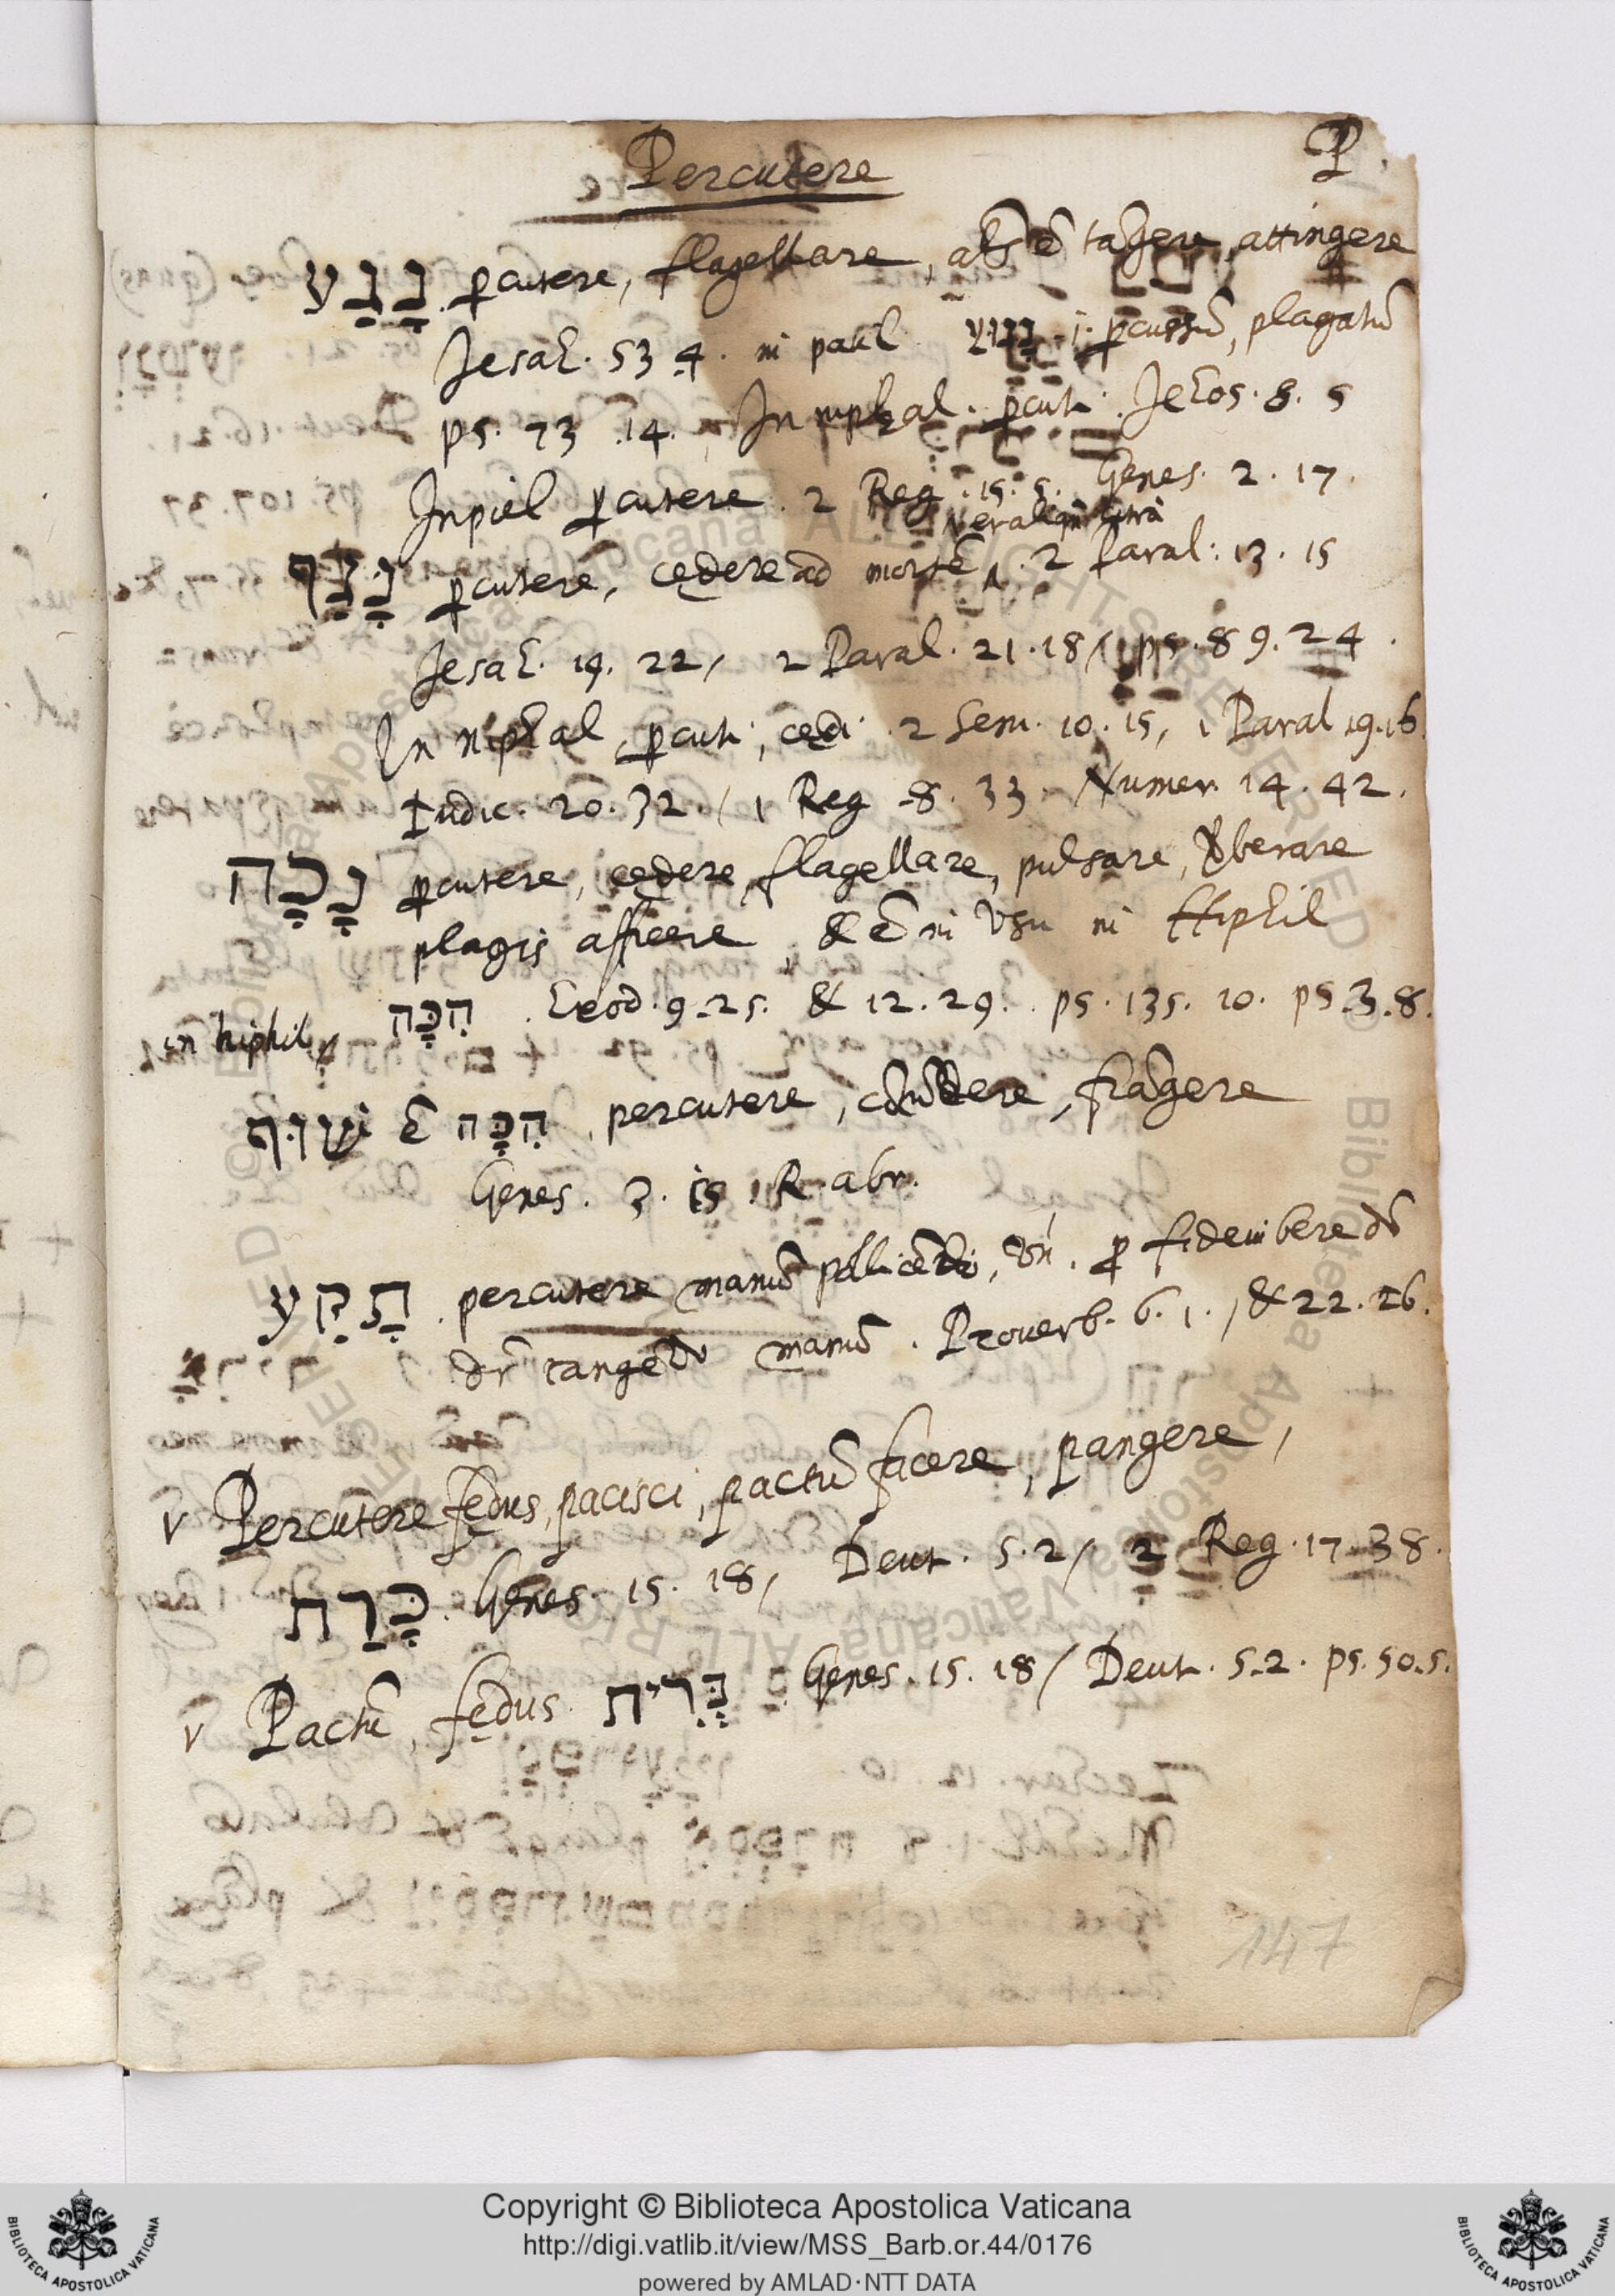 Percutere
P.
נָגַע ꝑcutere, flagellare, als ē tāgere, attingere
Jesaȝ. 53 4. in paul נָגוּעַ i. ꝑcussū, plagatū
ps. 73 .14. In niphal. ꝑcuti. Jehos. 8. 5
In piel ꝑcutere. 2 Reg. 15. 5. Genes. 2. 17.
נָגַף ꝑcutere, cędere ad mortē, 2 Paral: 13. 15
Jesaȝ. 19. 22, 2 Paral. 21. 18, ps. 89. 24.
In niphal, ꝑcuti, cędi 2 Sem. 10. 15, 1 Paral 19. 16
Iudic. 20. 32., 1 Reg 8. 33. Numer. 14. 42.
נָכָה ꝑcutere, cędere, flagellare, pulsare, vberare
plagis afficere, & ē in vsu in Hiphil
in hiphil, הִכָּה. Exod. 9. 25. & 12. 29. ps. 135. 10. ps. 3. 8.
שׁוּף ē הִכָּה, percutere, cōtūdere, frāgere
Genes. 3. 15. R. abr.
תָקַע. percutere manū pollicēdi, vn. ꝓ fideiubere dr̄
dr̄ tangēdo manū. Prouerb. 6. 1., & 22. 26.
v Percutere fędus, pacisci, pactū facere, pangere,
כָּרַת. Genes. 15. 18, Deut. 5. 2, 2 Reg. 17. 38.
v Pactū, fędus בְּרִית. Genes. 15. 18, Deut. 5. 2. ps. 50. 5.
147
Copyright © Biblioteca Apostolica Vaticana
http://digi.vatlib.it/view/MSS_Barb.or.44/0176
powered by AMLAD·NTT DATA
BIBLIOTECA APOSTOLICA VATICANA
BIBLIOTECA APOSTOLICA VATICANA